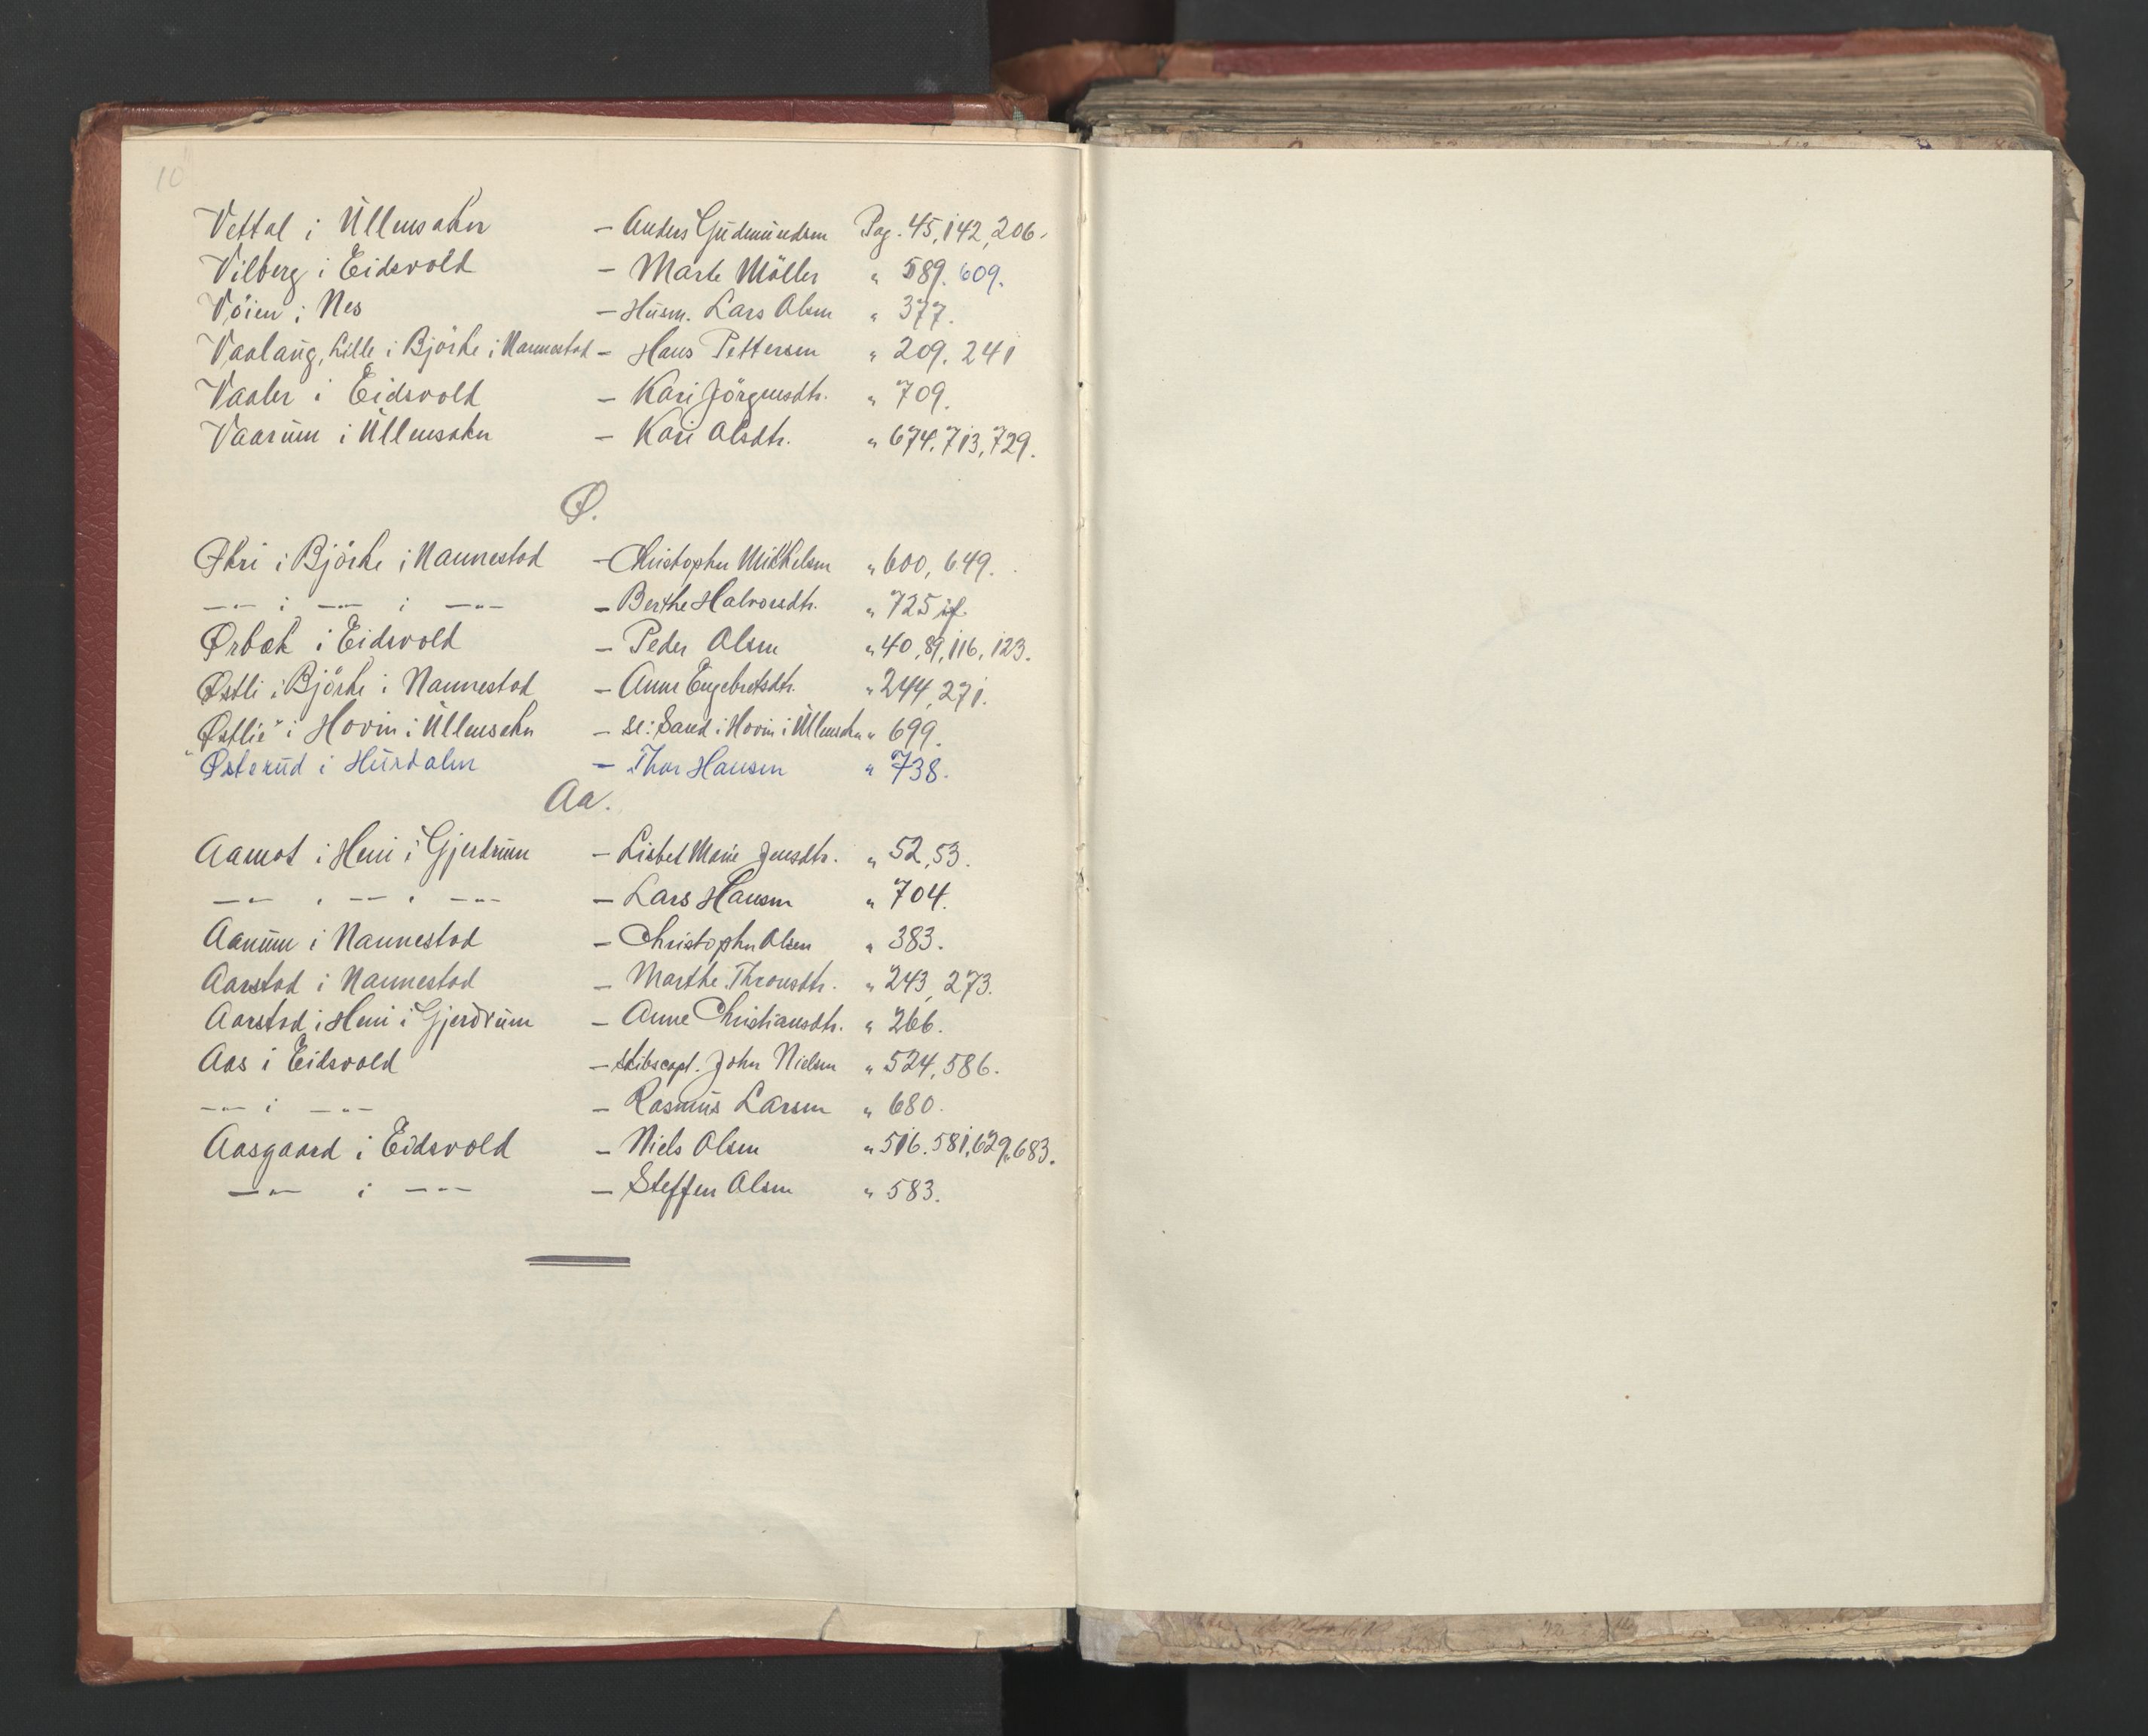 10
Vettal i Ullensaker – Anders Gudmundsen Pag. 45, 142, 206.
Vilberg i Eidsvold – Marte Möller " 589. 609.
Vöien i Nes – Husm. Lars Olsen " 377.
Vaalaug, Lille i Björke i Nannestad – Hans Pettersen " 209. 241
Vaaler i Eidsvold – Kari Jörgensdtr. " 709.
Vaarum i Ullensaker – Kari Olsdtr. " 674, 713, 729.
Ø.
Økri i Björke i Nannestad – Christopher Mikkelsen " 600, 649.
–"– i –"– i –"– – Berthe Halvorsdtr. " 725
Ørbæk i Eidsvold – Peder Olsen " 40, 89, 116, 123.
Østli i Björke i Nannestad – Anne Engebretsdtr. " 244, 271.
Østlie i Hovin i Ullensaker – se: Sand i Hovin i Ullensaker " 699.
"Østerud i Hurdalen – Thor Hansen " 738.
Aa.
Aamot i Heni i Gjerdrum – Lisbet Marie Jensdtr. " 52, 53.
–"– i –"– i –"– – Lars Hansen " 704.
Aanum i Nannestad – Christopher Olsen " 383.
Aarstad i Nannestad – Marthe Thronsdtr. " 243, 273.
Aarstad i Heni i Gjerdrum – Anne Christiansdtr. " 266.
Aas i Eidsvold – Skibscapt. John Nielsen " 524, 586.
–"– i –"– – Rasmus Larsen " 680.
Aasgaard i Eidsvold – Niels Olsen " 516. 581, 629, 683.
–"– i –"– – Steffen Olsen " 583.